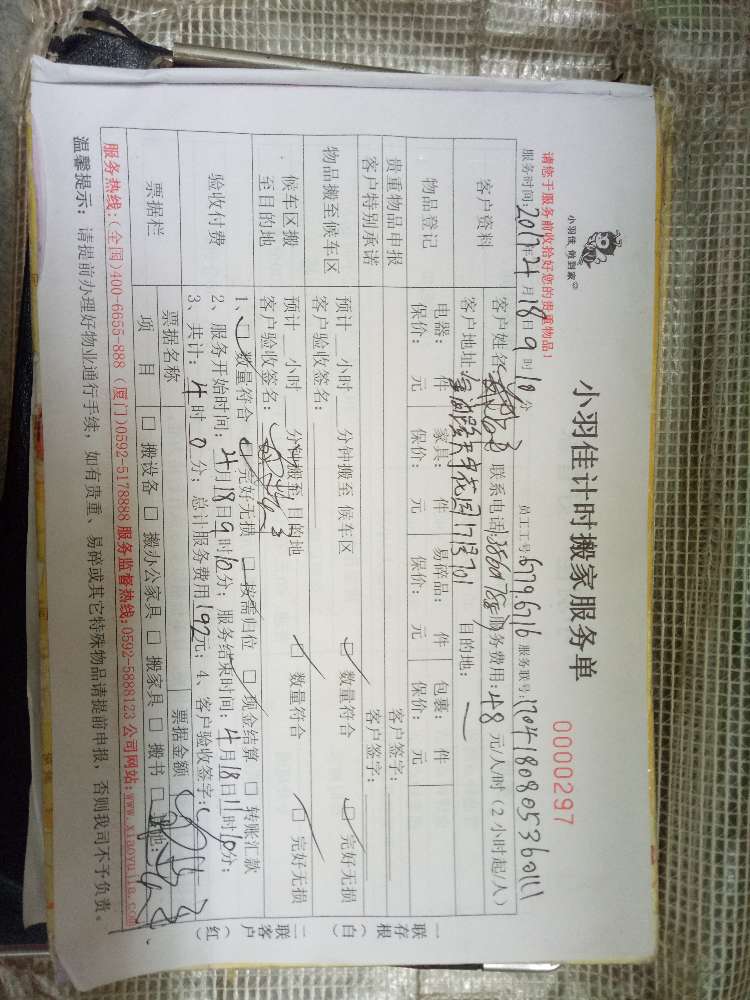 小羽佳 做到家
小羽佳计时搬家服务单
0000297
请您于服务前收拾好您的贵重物品!
服务时间:2017年4月18日9时10分 员工工号: 服务联号:
客户资料
客户姓名: 联系电话: 服务费用:48元/人/时(2小时起/人)
客户地址: 目的地:
物品登记
电器: 件 家具: 件 易碎品: 件 包裹: 件
保价: 元 保价: 元 保价: 元 保价: 元
贵重物品申报 客户签字:
客户特别承诺 客户签字:
物品搬至候车区
预计__小时__分钟搬至 候车区 □ 数量符合 □ 完好无损
客户验收签名:
候车区搬至目的地
预计__小时__分钟搬至 目的地 □ 数量符合 □ 完好无损
客户验收签名:
验收付费
1、□ 数量符合 □ 完好无损 □ 按需归位 □ 现金结算 □ 转账汇款
2、服务开始时间:4月18日9时10分;服务结束时间:4月18日11时10分;
3、共计:4时0分;总计服务费用192元;4、客户验收签字:
票据栏
票据名称 票据金额
项目 □ 搬设备 □ 搬办公家具 □ 搬家具 □ 搬书 □ 其他:
服务热线:(全国)400-6655-888 (厦门)0592-5178888 服务监督热线:0592-5888123 公司网站:www.xiaoyujia.com
温馨提示:请提前办理好物业通行手续,如有贵重、易碎或其它特殊物品请提前申报,否则我司不予负责。
一联存根(白) 二联客户(红)